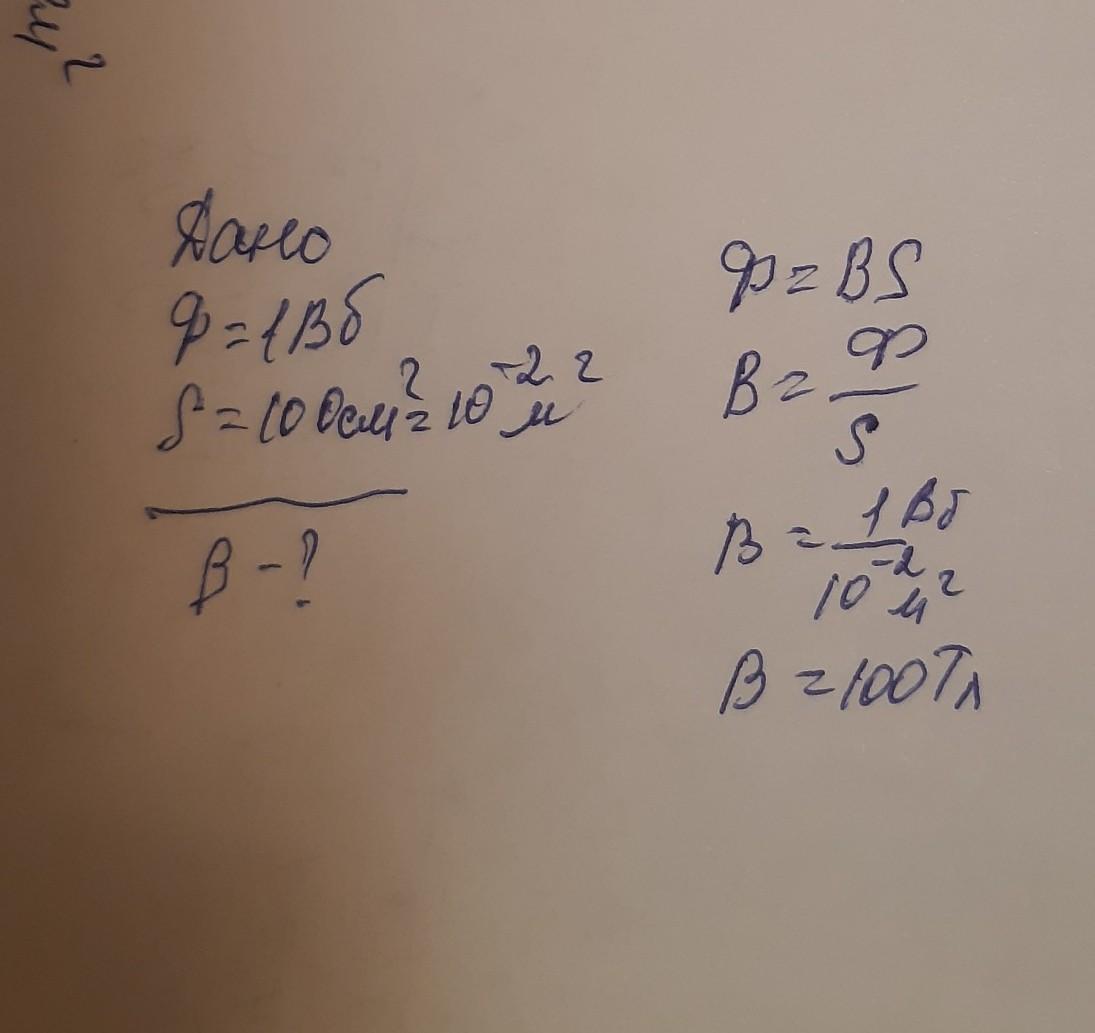 м²
Дано
Ф = 1 Вб
S = 100 см² = 10⁻² м²
B - ?
Ф = BS
B = Ф/S
B = 1 Вб/10⁻² м²
B = 100 Тл